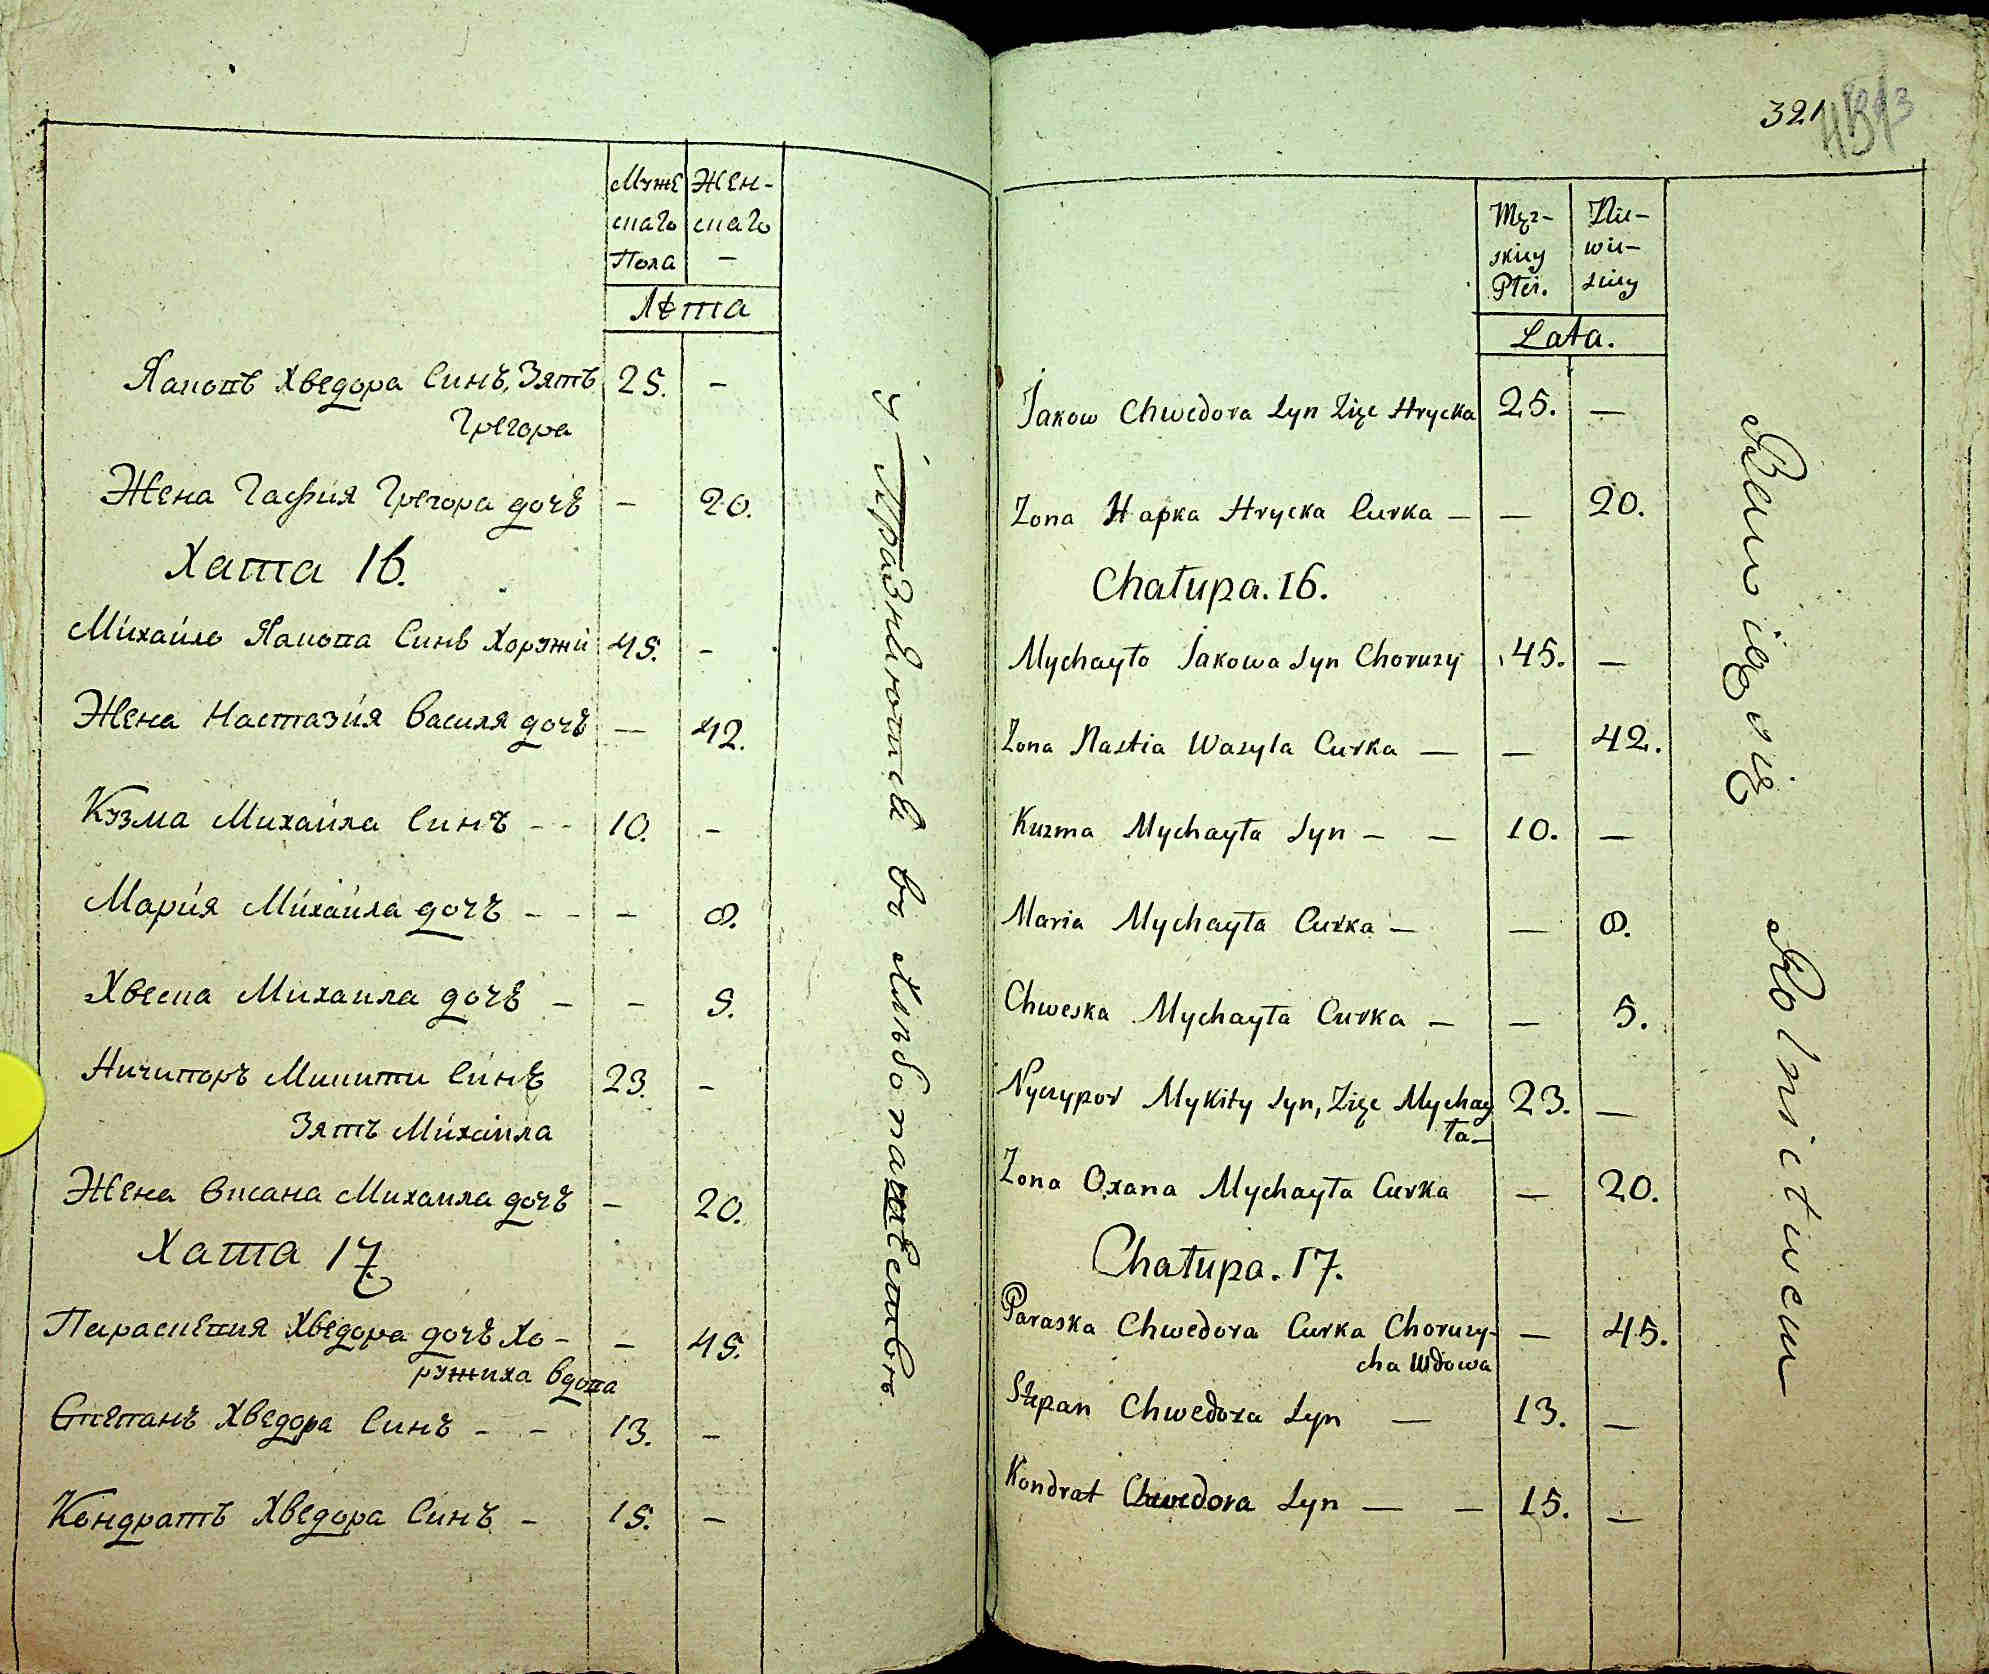 Муже Жен-
скаго скаго
Пола –
Лѣта
Яковъ Хведора Синъ, Зять 25. –
Грегора
Жена Гафия Грегора дочъ – 20.
Хата 16.
Михайло Якова Синъ Хоружи 45. –
Жена Настазия Василя дочъ – 42.
Кузма Михаила Синъ – – 10. –
Мария Михаила дочъ – – – 8.
Хвеска Михаила дочъ – – 5.
Ничипоръ Микити Синъ 23. –
Зять Михаила
Жена Виcана Михаила дочъ – 20.
Хата 17.
Параскевия Хведора дочъ Хо- – 45.
ружиха вдова
Степанъ Хведора Синъ – – 13. –
Кондратъ Хведора Синъ – 15. –
въ Хлѣбопашествѣ
321
Męz- Nie-
skiey wie-
Płci. skiey
Lata.
Jakow Chwedora Syn Zięc Hrycka 25. –
Zona Hapka Hrycka Curka – – 20.
Chałupa. 16.
Mychayło Jakowa Syn Choruzy 45. –
Zona Nastia Wasyla Curka – – 42.
Kuzma Mychayła Syn – – 10. –
Maria Mychayła Curka – – 8.
Chweska Mychayła Curka – – 5.
Nyczypor Mykity Syn, Zięc Mychay 23. –
ła –
Zona Oxana Mychayła Curka – 20.
Chałupa. 17.
Paraska Chwedora Curka Choruzy- – 45.
cha Wdowa
Stepan Chwedora Syn – 13. –
Kondrat Chwedora Syn – – 15. –
Bawią się Rolnictwem